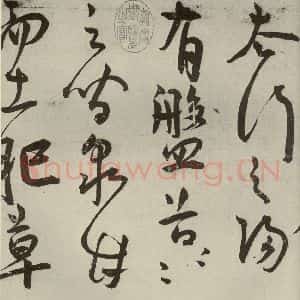 太行之陽
有盤谷〻
之間泉甘
而土肥草
Shufawang.CN